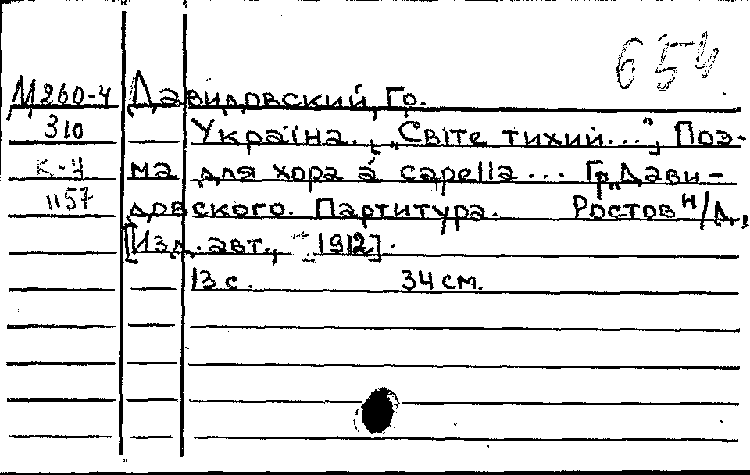 654
М260-4 Давидовский, Гр.
310 Україна. „Світе тихий...", Поэ-
К-4 ма для хора à capella ... Гр. Дави-
1157 довского. Партитура. Ростов н/Д.,
[Изд. авт., 1912].
13 с. 34 см.